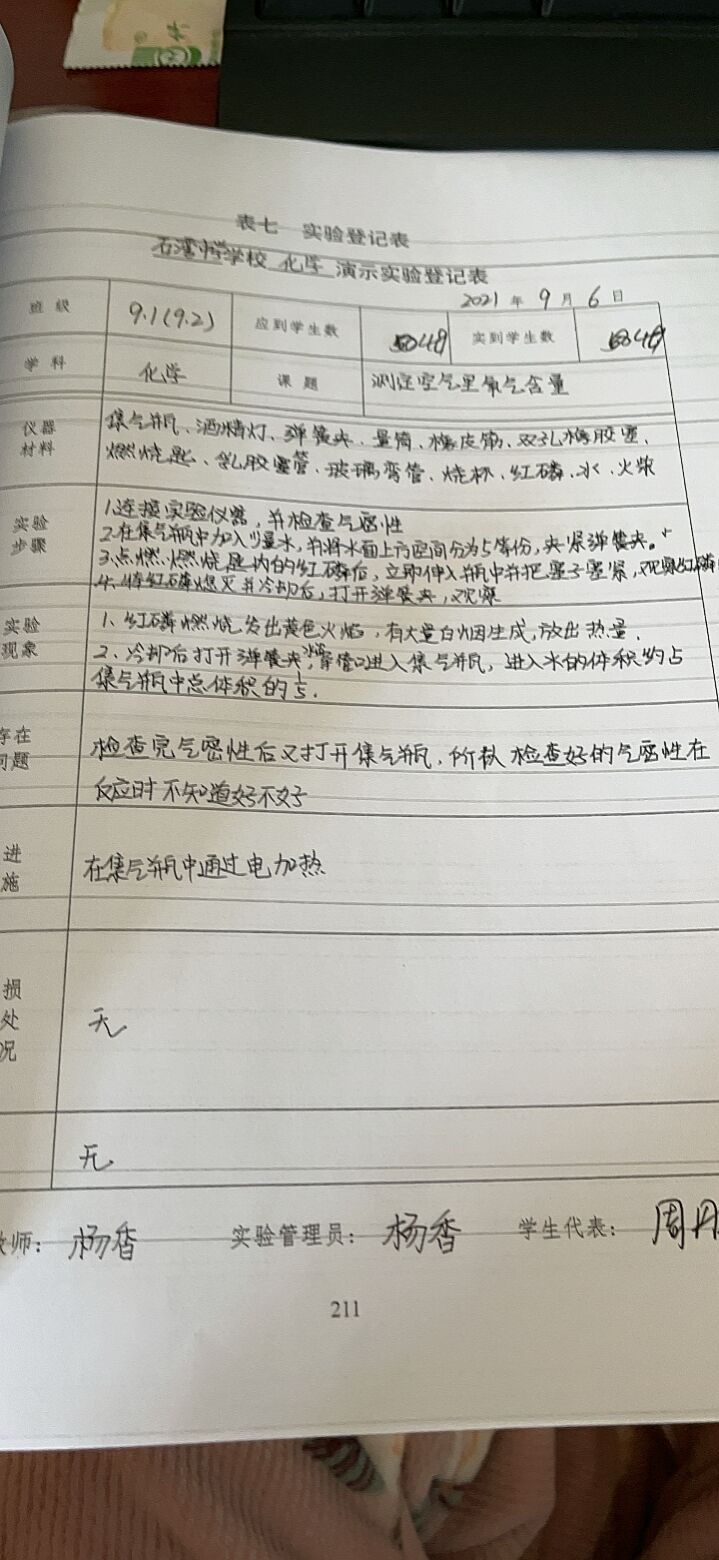 表七 实验登记表
石湾中学学校 化学 演示实验登记表
2021 年 9 月 6 日
班 级 9.1(9.2) 应到学生数 48 实到学生数 48
学 科 化学 课 题 测定空气里氧气含量
仪器 集气瓶、酒精灯、弹簧夹、量筒、橡皮筋、双孔橡胶塞、
材料 燃烧匙、乳胶管、玻璃弯管、烧杯、红磷、水、火柴
实验 1.连接实验仪器,并检查气密性
步骤 2.在集气瓶中加入少量水,并将水面上方空间分为5等份,夹紧弹簧夹。
3.点燃燃烧匙内的红磷后,立即伸入瓶中并把塞子塞紧,观察红磷
4.待红磷熄灭并冷却后,打开弹簧夹,观察
实验 1、红磷燃烧发出黄色火焰,有大量白烟生成,放出热量.
现象 2、冷却后打开弹簧夹,水沿导管口进入集气瓶,进入水的体积约占
集气瓶中总体积的1/5.
存在 检查完气密性后又打开集气瓶,所以检查好的气密性在
问题 反应时不知道好不好
进
施 在集气瓶中通过电加热
损
处 无
况
无
教师: 杨香 实验管理员: 杨香 学生代表: 周丹
211